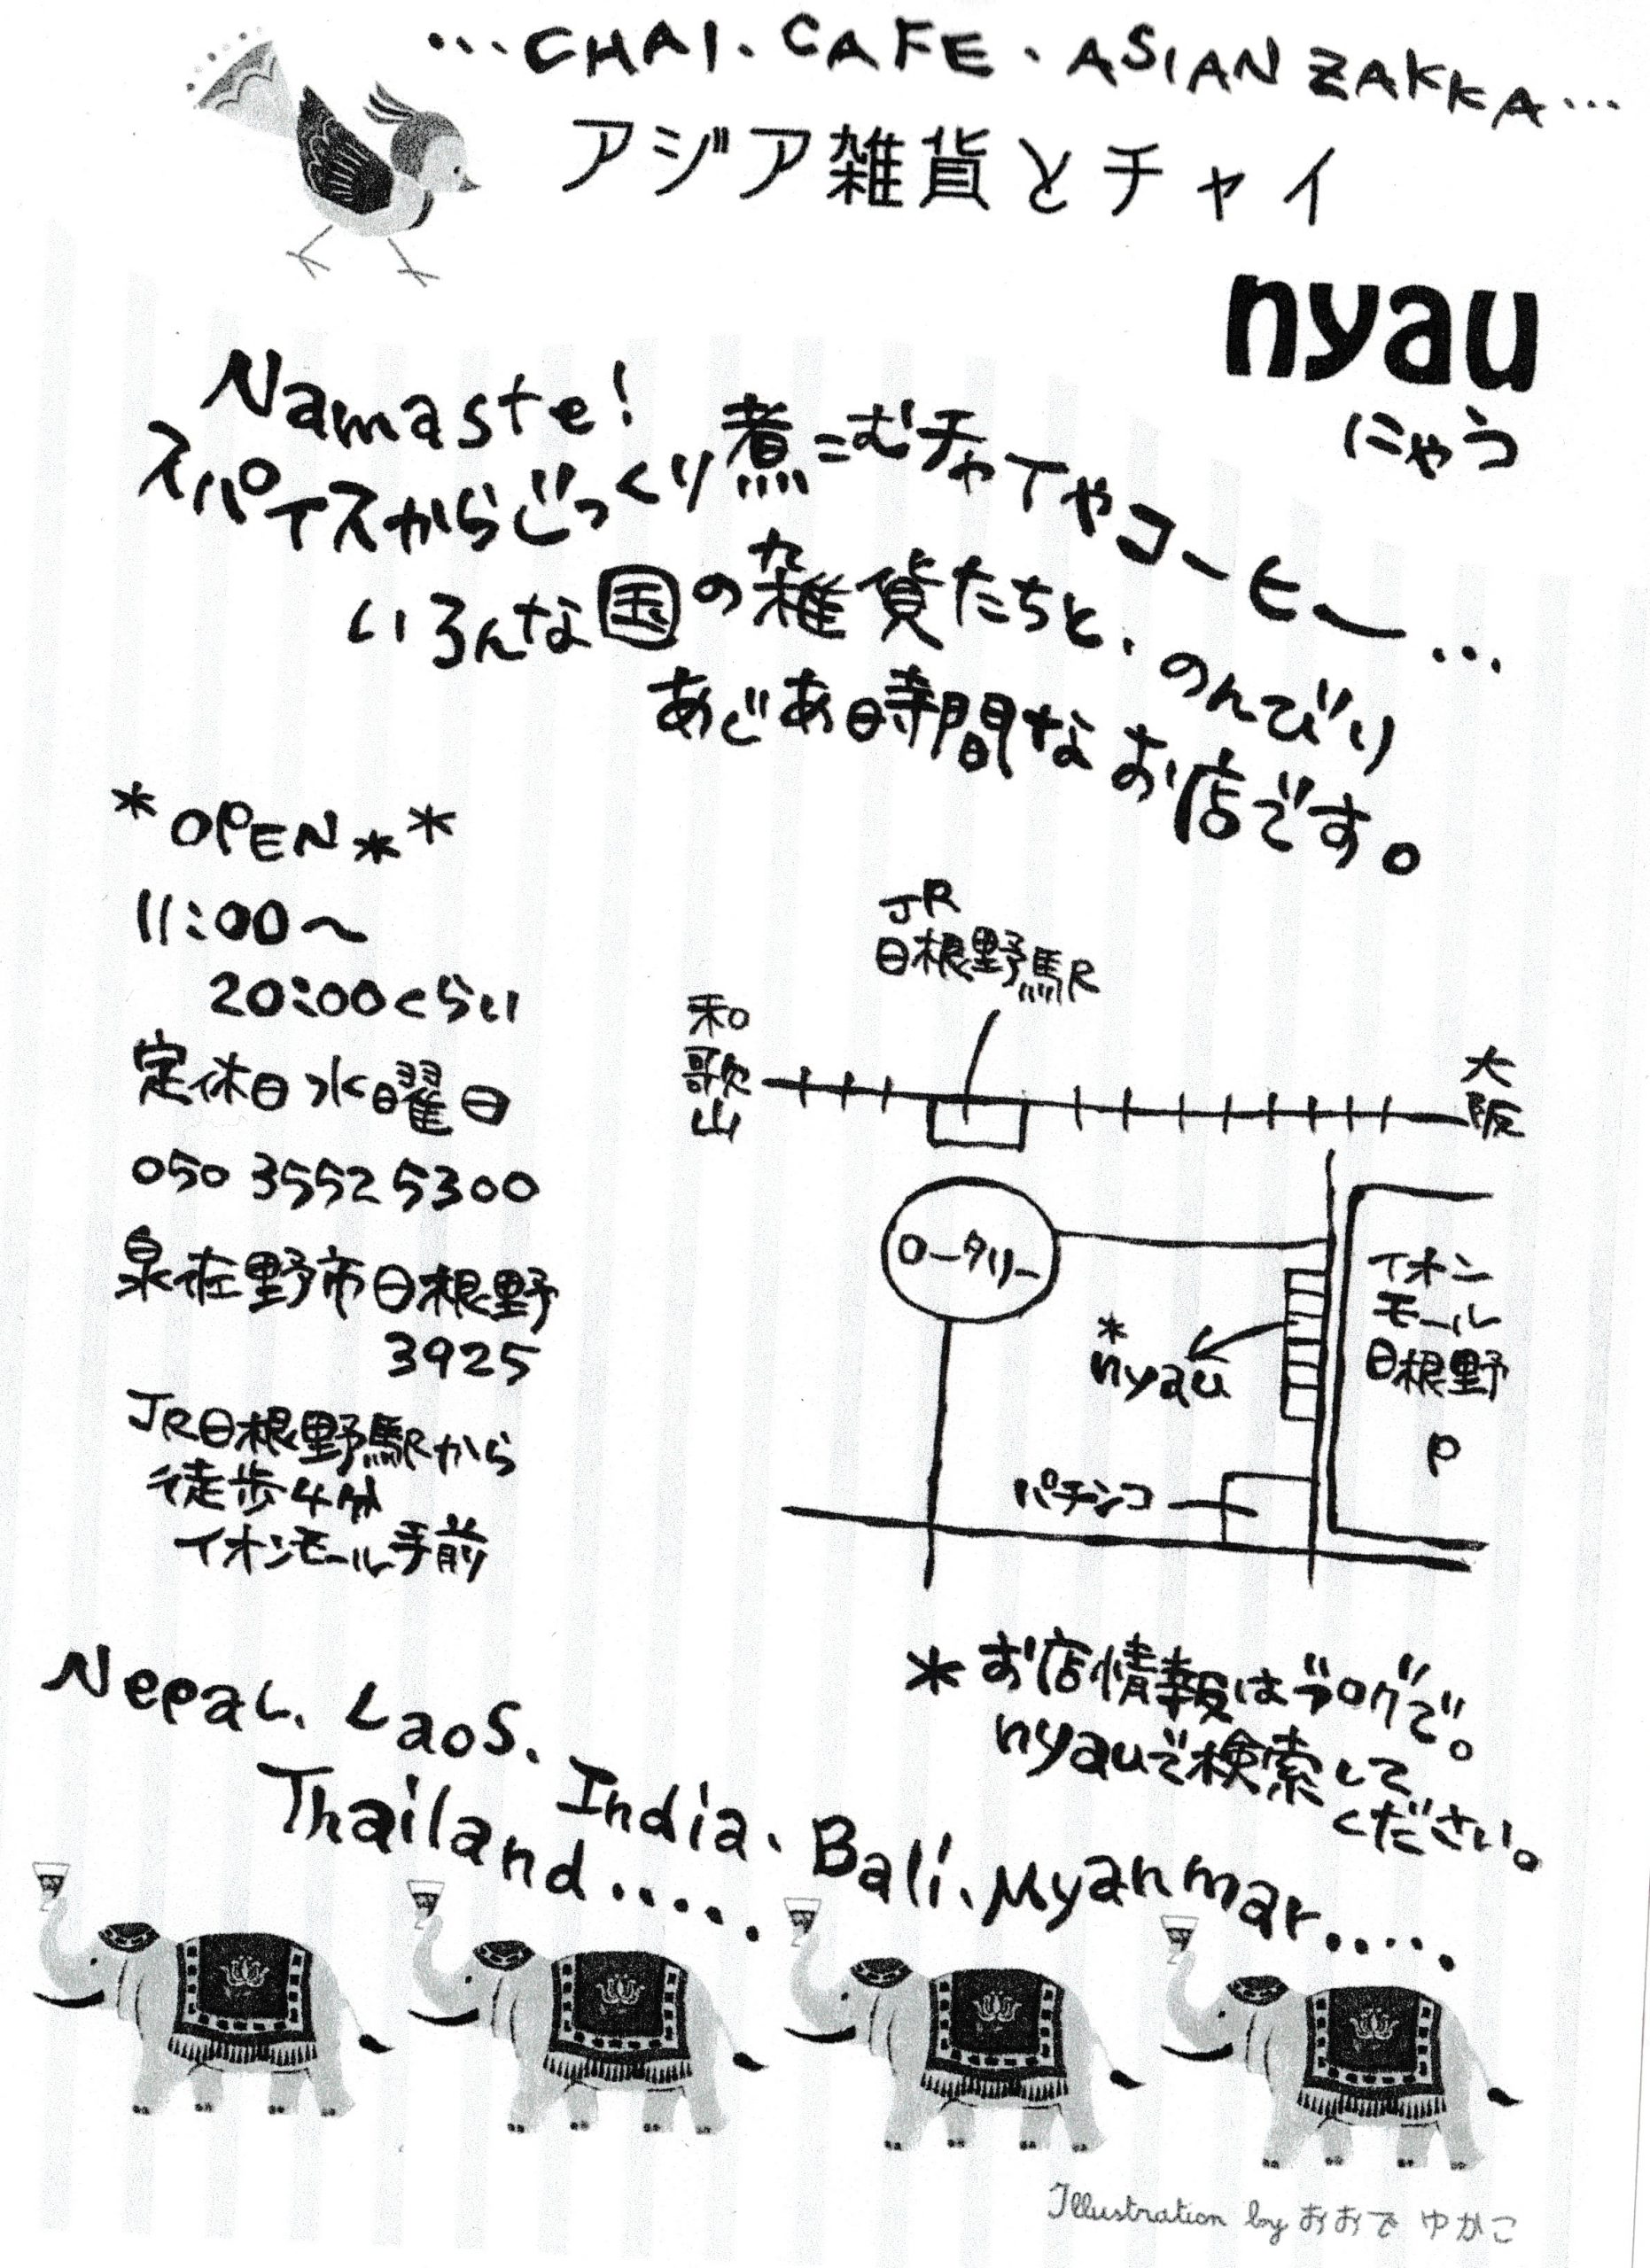 ...CHAI.CAFE.ASIAN ZAKKA...
アジア雑貨とチャイ
nyau
にゃう
Namaste!
スパイスからじっくり煮こむチャイやコーヒー...
いろんな国の雑貨たちと、のんびり
あじあ時間なお店です。
*OPEN**
11:00〜
20:00くらい
定休日 水曜日
050 3552 5300
泉佐野市日根野
3925
JR日根野駅から
徒歩4分
イオンモール手前
JR
日根野駅
和歌山
大阪
ロータリー
イオン
モール
日根野
P
*
nyau
パチンコ
*お店情報はブログで。
nyauで検索して
ください。
Nepal、Laos、India、Bali、Myanmar.....
Thailand......
Illustration by おおで ゆかこ